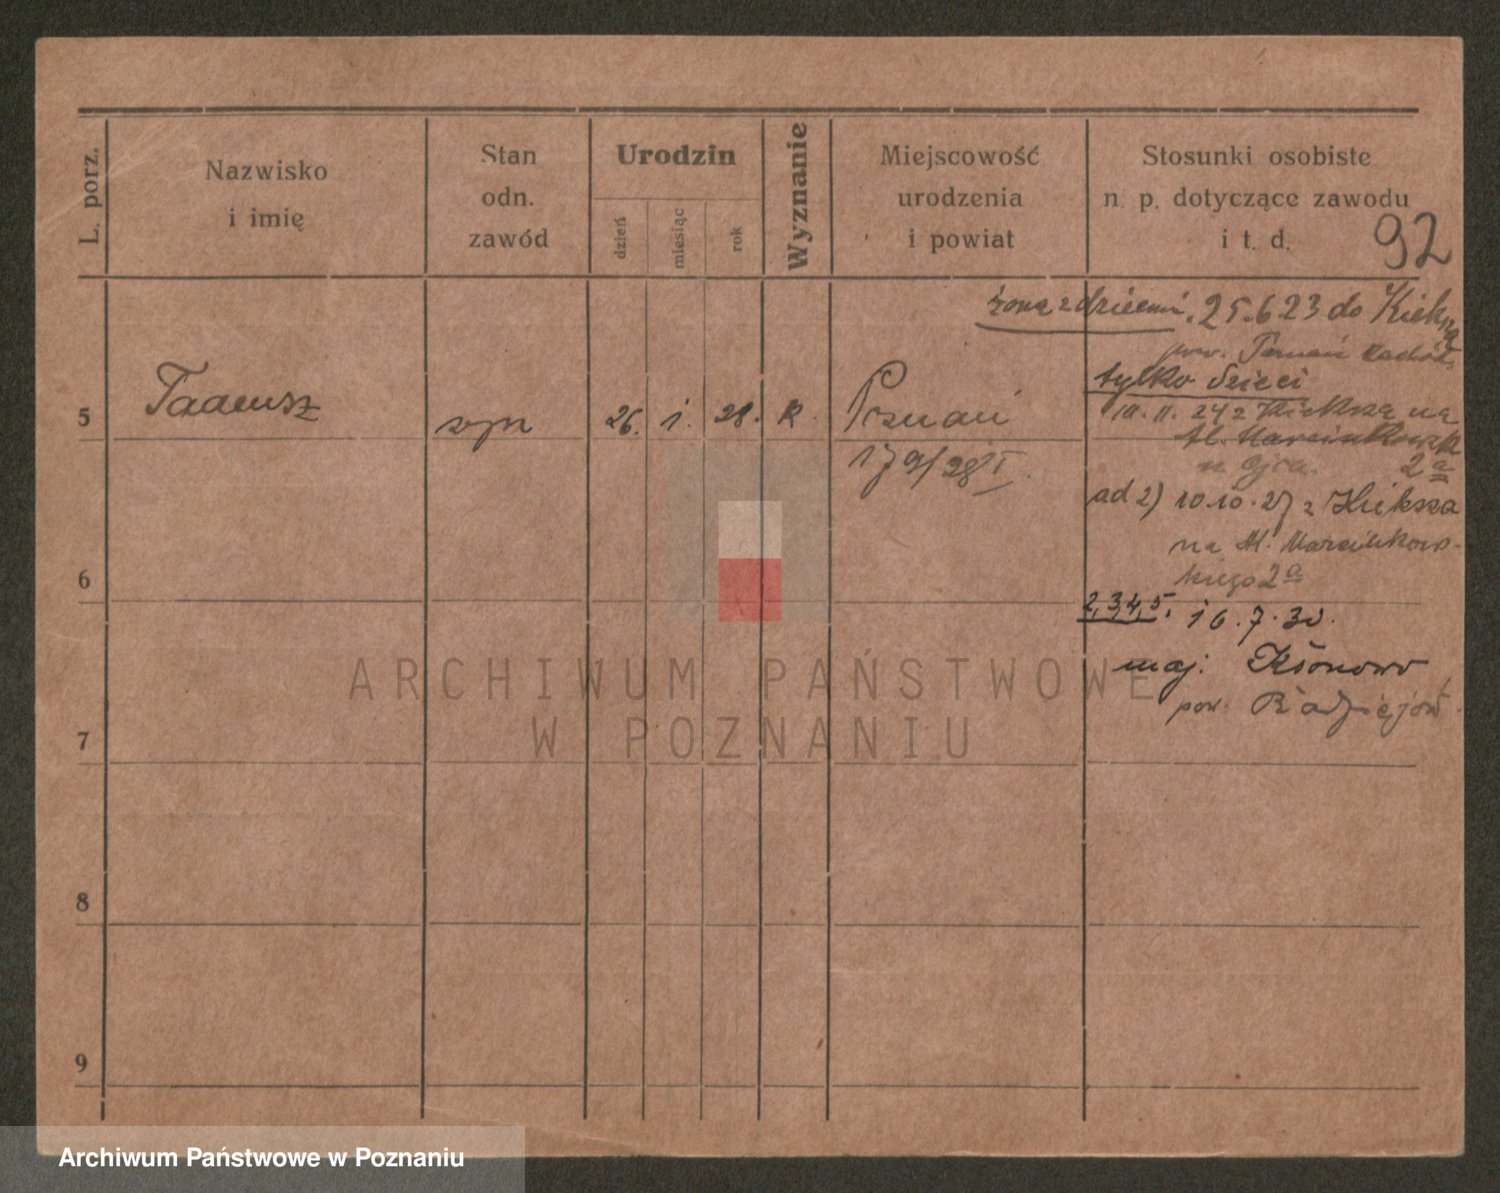 L. porz.
Nazwisko
i imię
Stan
odn.
zawód
Urodzin
dzień
miesiąc
rok
Wyznanie
Miejscowość
urodzenia
i powiat
Stosunki osobiste
n. p. dotyczące zawodu
i t. d.
92
żona z dziećmi. 25.6.23 do Kiekrza
pow. Poznań
tylko dzieci
5 Tadeusz syn 26. 1. 28. k. Poznań
10.11.24 z na
Al. Marcinkowsk
2a
179/28 I.
ad 2) 10.10.27 z
na Al. Marcinkow-
skiego 2a
6
2, 3, 4, 5. 16.7.30.
maj. Kłonowo
pow. Radziejów
7
8
9
ARCHIWUM PAŃSTWOWE
W POZNANIU
Archiwum Państwowe w Poznaniu